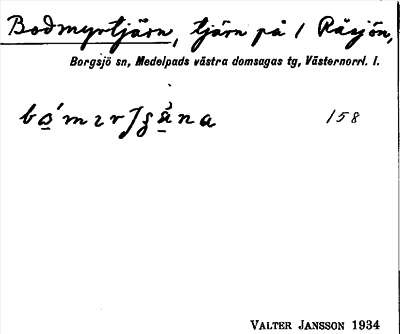 Bodmyrtjärn, tjärn på / Råsjön,
Borgsjö sn, Medelpads västra domsagas tg, Västernorrl. l.
158
VALTER JANSSON 1934